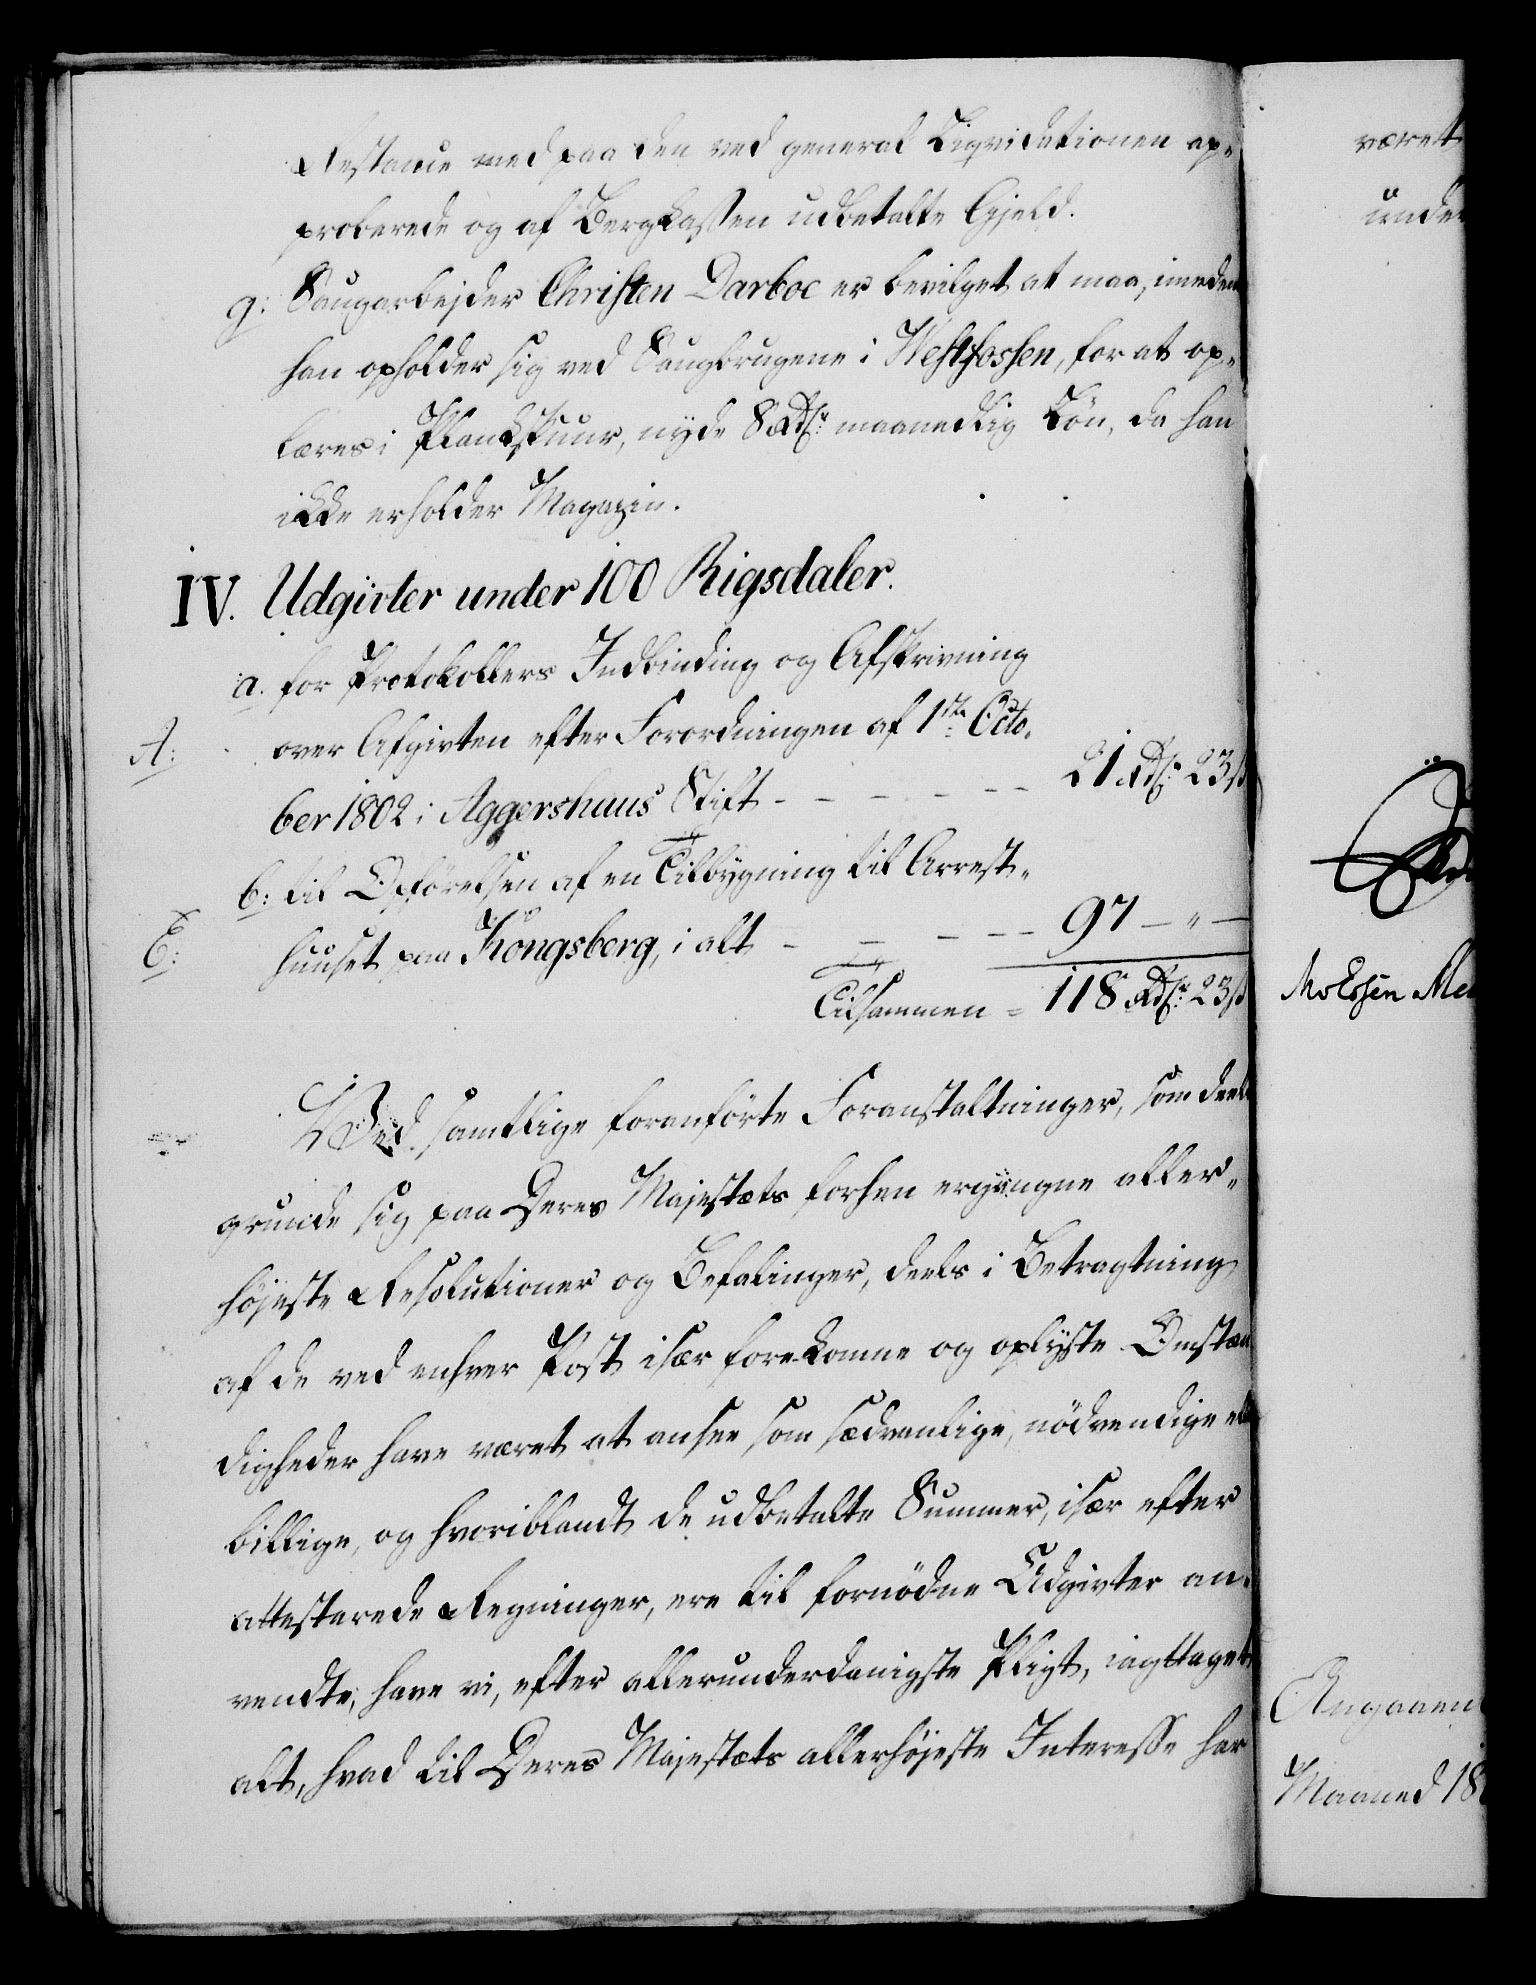 Restance med paa den ved general Liqvidationen ap-
proberede og af Bergkassen udbetalte Gjeld.
g: Saugarbejder Christen Darboe er bevilget at maa, imeden
han opholder sig ved Saugbrugene i Westfossen, for at op-
læres i Plankskuur, nyde 8 Rdlr: maanedlig Løn, da han
ikke erholder Magazin.
IV. Udgivter under 100 Rigsdaler.
a. for Protokollers Indbinding og Afskrivning
A: over Afgivten efter Forordningen af 1ste Octo-
ber 1802 i Aggershuus Stift - - - - - - 21 Rdlr: 23 ß
b: til Opførelsen af en Tilbygning til Arrest-
E: huuset paa Kongsberg, i alt - - - - - 97 - " -
Tilsammen = 118 Rdlr: 23 ß
Ved samtlige foranførte Foranstaltninger, som deels
grunde sig paa Deres Majestæts forhen ergangne aller-
højeste Resolutioner og Befalinger, deels i Betragtning
af de ved enhver Post især forekomne og oplyste Omstæn
digheder have været at ansee som sædvanlige, nødvendige ell
billige, og hvoriblandt de udbetalte Summer, især efter
attesterede Regninger, ere til fornødne Udgivter an-
vendte, have vi, efter allerunderdanigste Pligt, iagttaget
alt, hvad til Deres Majestæts allerhøjeste Interesse har
været
under
Angaaen
Maaned 18